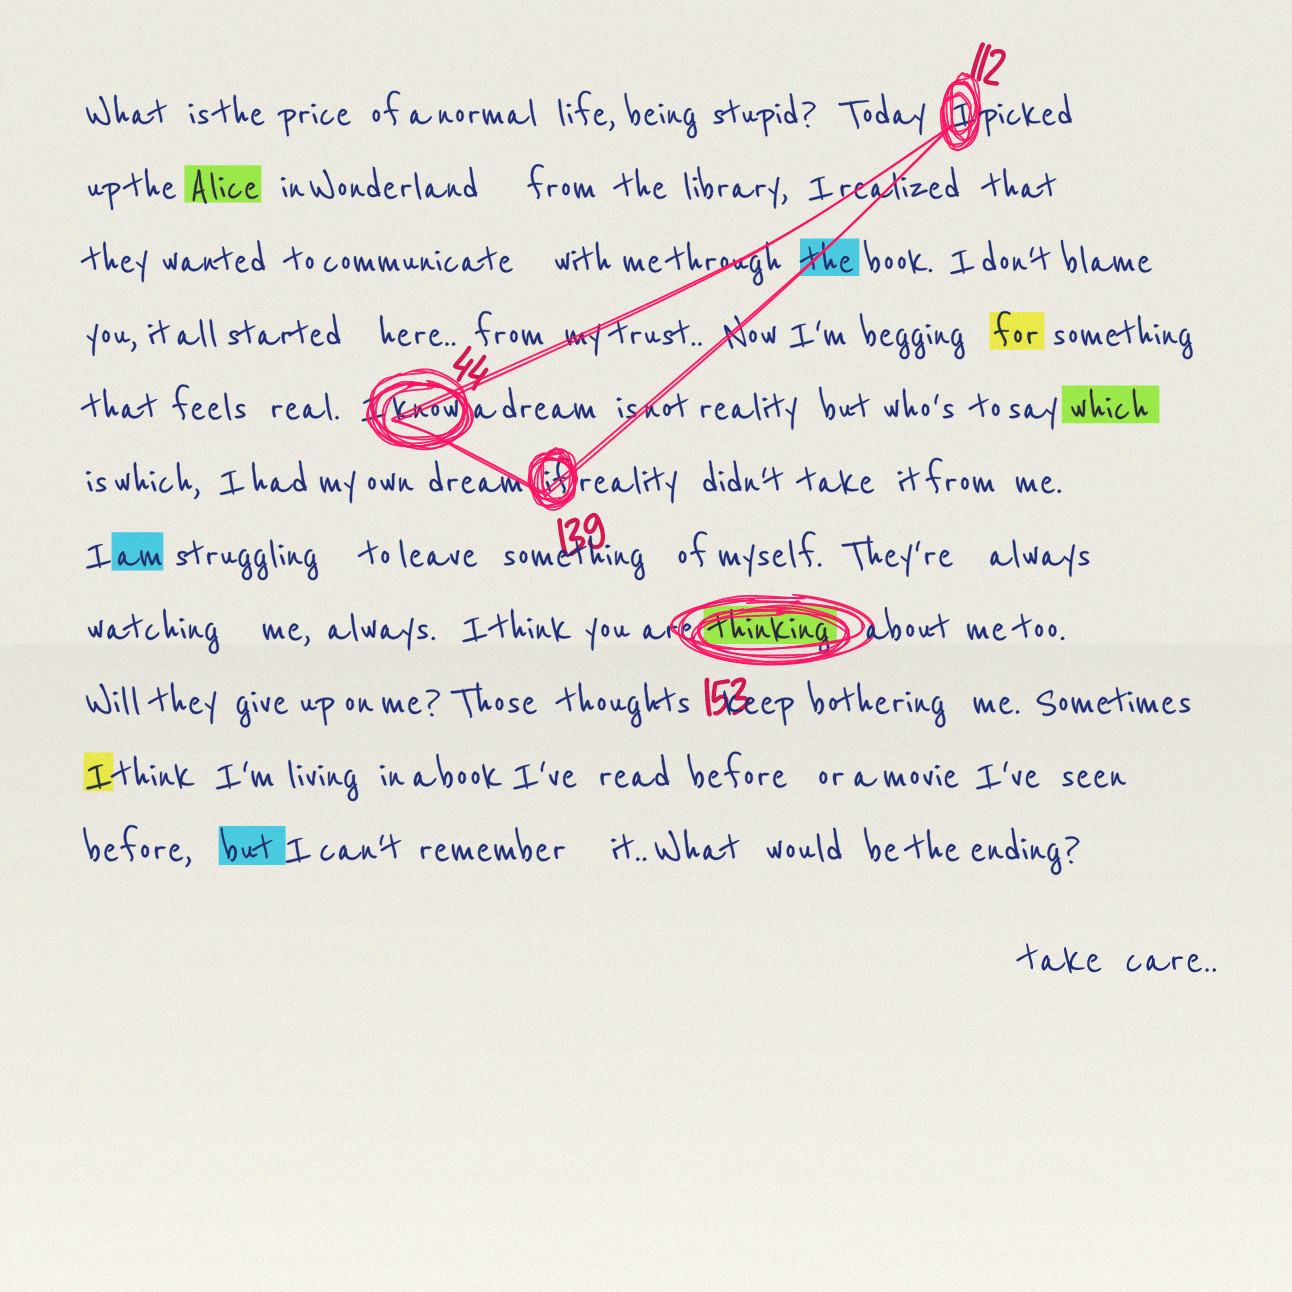 112
What is the price of a normal life, being stupid? Today I picked
up the Alice in Wonderland from the library, I realized that
they wanted to communicate with me through the book. I don't blame
you, it all started here.. from my trust.. Now I'm begging for something
44
that feels real. I know a dream is not reality but who's to say which
is which, I had my own dream if reality didn't take it from me.
139
I am struggling to leave something of myself. They're always
watching me, always. I think you are thinking about me too.
153
Will they give up on me? Those thoughts keep bothering me. Sometimes
I think I'm living in a book I've read before or a movie I've seen
before, but I can't remember it.. What would be the ending?
take care..